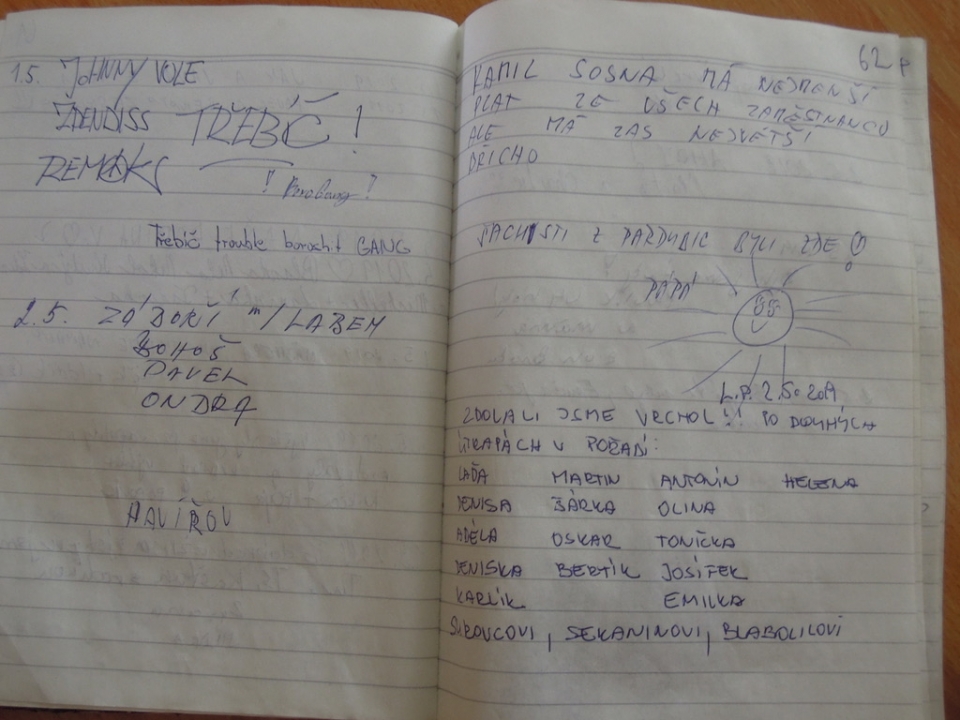 1.5. JOHNNY VOLE
ZDENDISS TŘEBÍČ!
REMAKS
Třebíč trouble borochit GANG
2.5. ZÁBOŘÍ n/LABEM
BOHOŠ
PAVEL
ONDRA
HAVÍŘOV
62
KAMIL SOSNA MÁ NEJMENŠÍ
PLAT ZE VŠECH ZAMĚSTNANCŮ
ALE MÁ ZAS NEJVĚTŠÍ
BŘICHO
ŠACHISTI Z PARDUBIC BYLI ZDE!
PÁPÁ
L.P. 2.5. 2019
ZDOLALI JSME VRCHOL!! PO DLOUHÝCH
ÚTRAPÁCH V POŘADÍ:
LAĎA MARTIN ANTONÍN HELENA
DENISA ŠÁRKA OLINA
ADÉLA OSKAR TONIČKA
DENISKA BERTÍK JOSÍFEK
KARLÍK EMILKA
SEKANINOVI, BLABOLILOVI